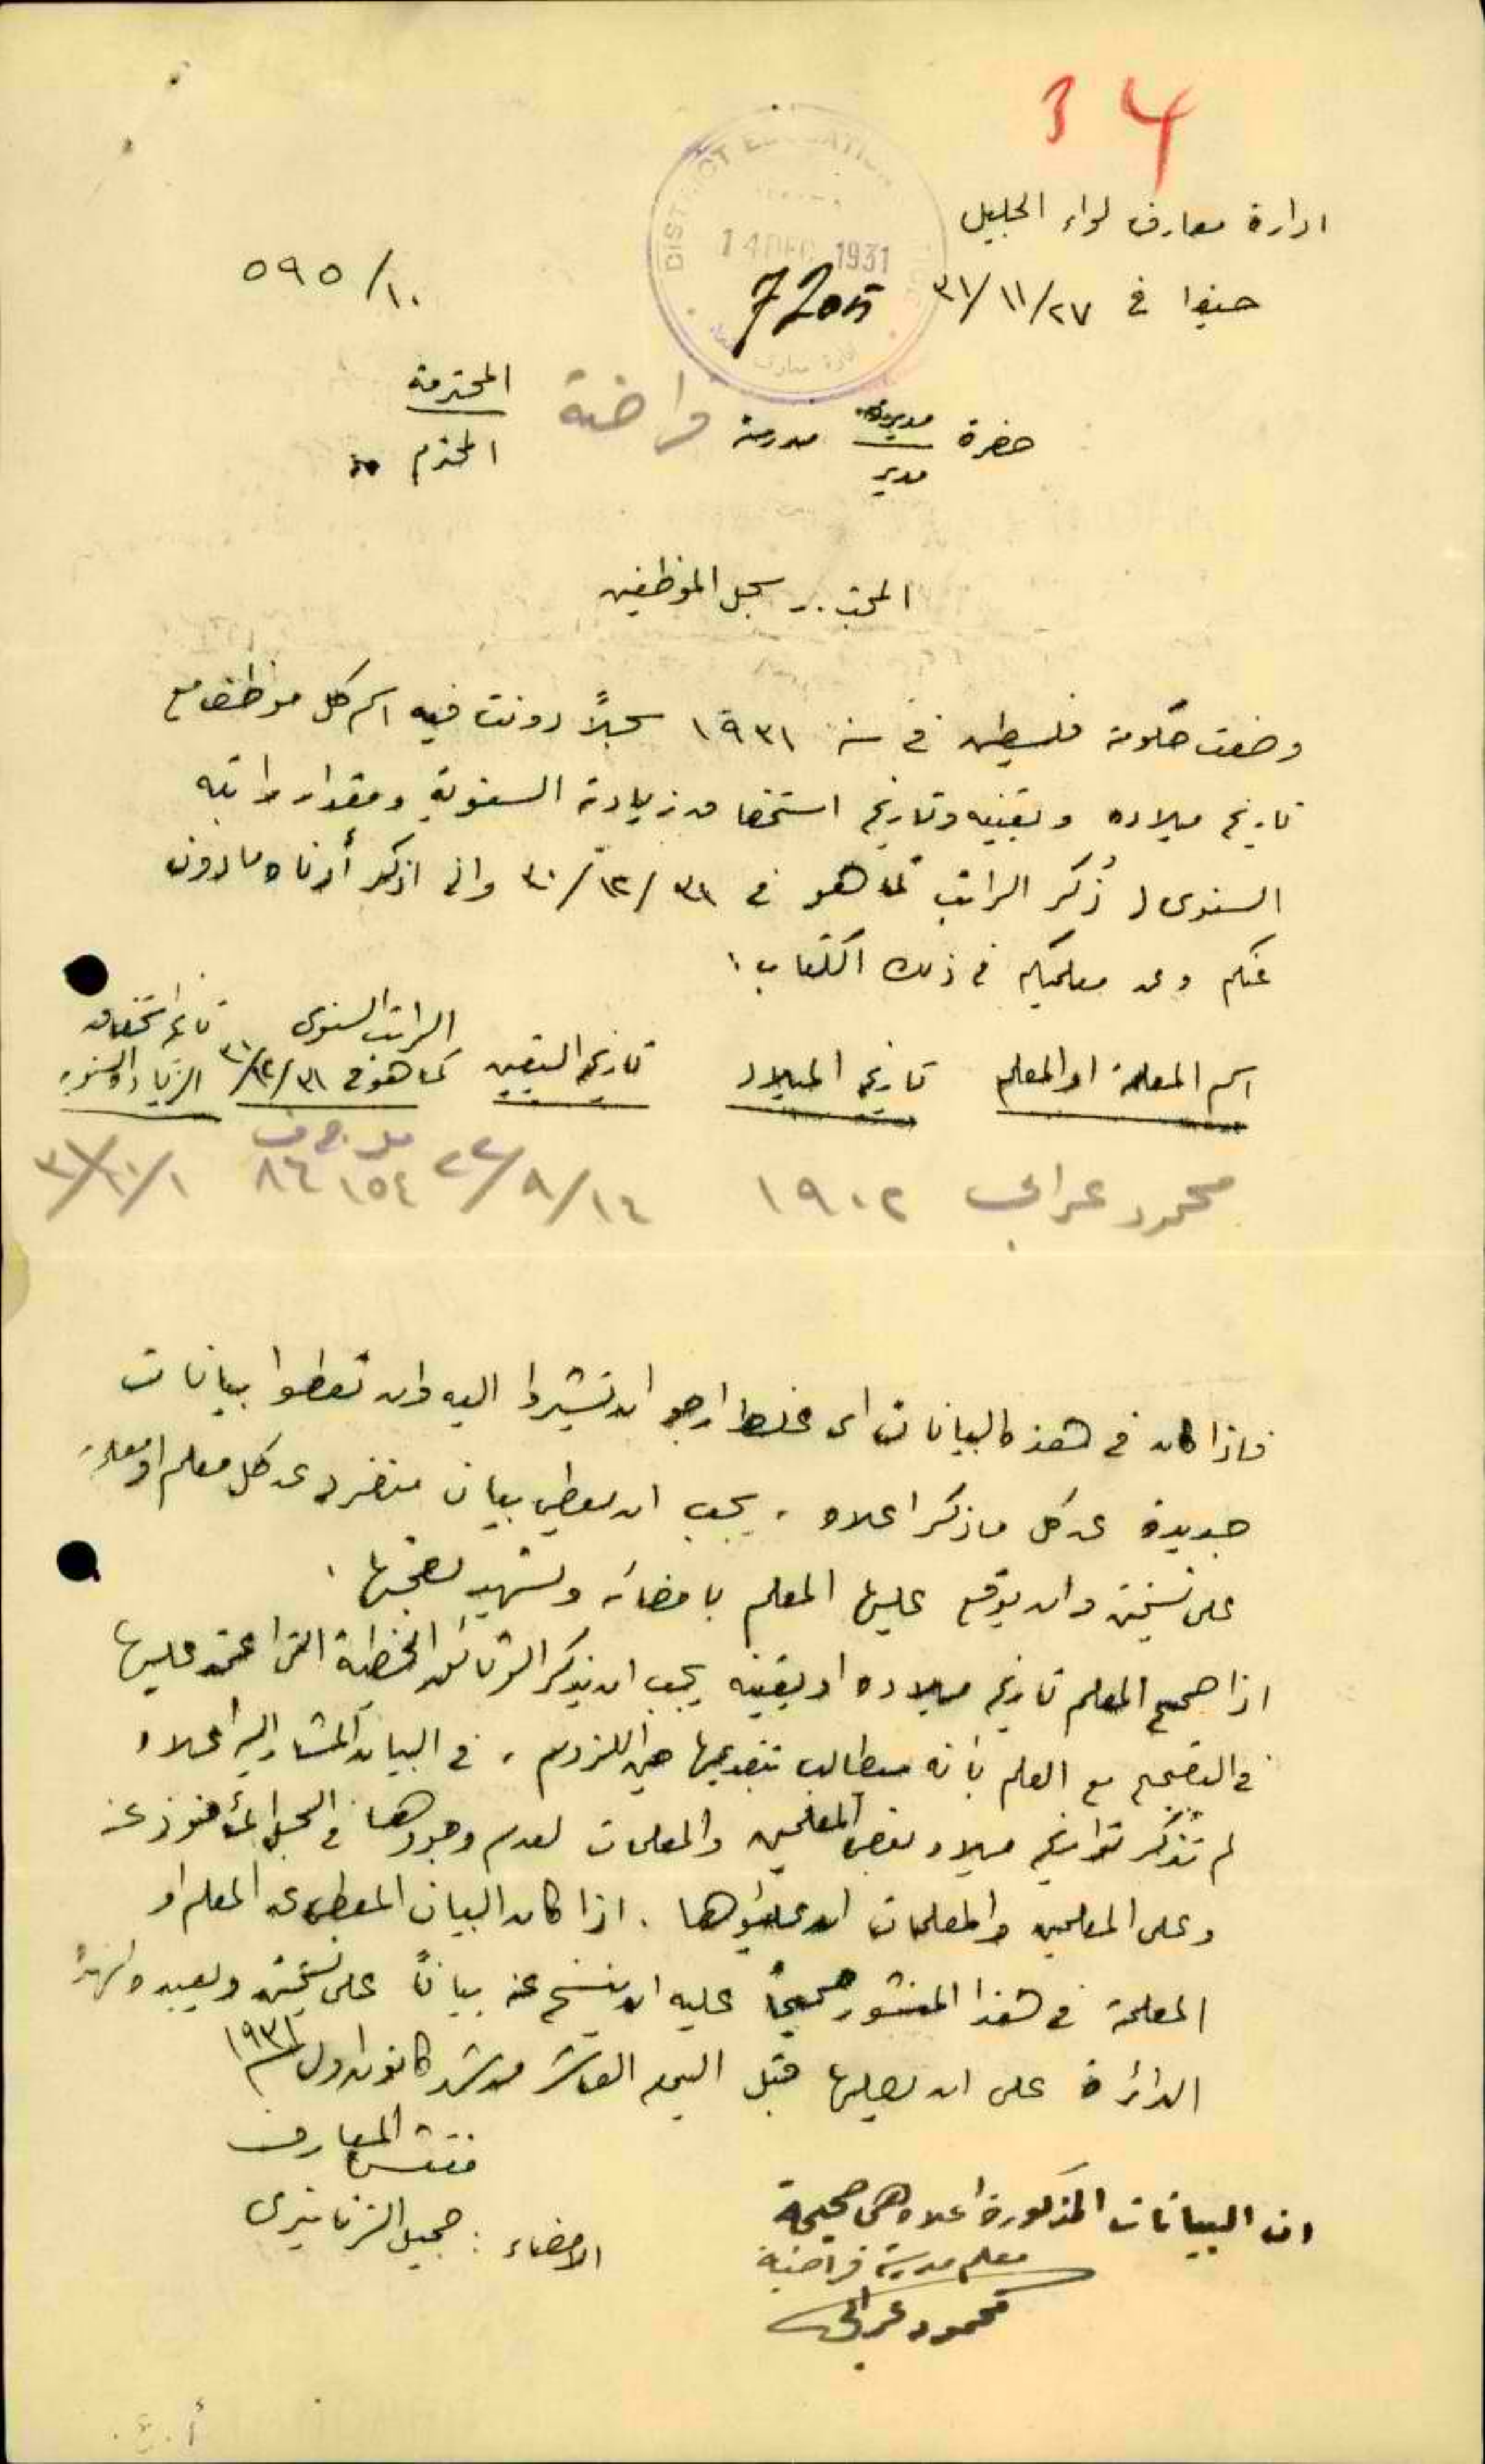 34
ادارة معارف لواء الجليل
DISTRICT EDUCATION
14 DEC 1931
7205
حيفا في ٢٧/١١/٣١
١٠/٥٩٥
حضرة مديرة مدرسة فراضية المحترمة
مدير المحترم
سجل الموظفين
وضعت حكومة فلسطين في سنة ١٩٣١ سجلاً دونت فيه اسم كل موظف مع
تاريخ ميلاده وتعيينه وتاريخ استحقاقه زيادته السنوية ومقدار راتبه
السنوي ذُكر الراتب كما هو في ٣١/١٢/٣٠ واني اذكر أدناه ما دون
عنكم وعن معلميكم في ذلك الكتاب .
اسم المعلمة او المعلم تاريخ الميلاد تاريخ التعيين الراتب السنوي كما هو في ٣١/١٢/٣٠ تاريخ استحقاق الزيادة السنوية
محمود عرابي ١٩٠٢ ١٤/٩/٢٢
فاذا كان في هذه البيانات اي غلط ارجو ان تشيروا اليه وان تعطوا بيانات
جديدة عن كل ما ذكر اعلاه ، يجب ان يعطى بيان منفرد عن كل معلم او معلمة
على نسختين وان يوقع عليها المعلم بامضائه ويشهد بصحتها .
اذا صحح المعلم تاريخ ميلاده او تعيينه يجب ان يذكر الوثائق الخطية التي اعتمد عليها
في التصحيح مع العلم بأنه سيطالب بتقديمها حين اللزوم ، في البيان المشار اليه اعلاه
لم تُذكر تواريخ ميلاد بعض المعلمين والمعلمات لعدم وجودها في السجل المأخوذ عنه
وعلى المعلمين والمعلمات ان يملأوها . اذا كان البيان المعطى عن المعلم او
المعلمة في هذا المنشور صحيحاً عليه ان ينسخ عنه بياناً على نسختين ويعيده لهذه
الدائرة على ان يصلها قبل اليوم العاشر من شهر كانون الاول ١٩٣١
مفتش المعارف
الامضاء : جميل الزناتيري
ان البيانات المذكورة اعلاه هي صحيحة
معلم مدرسة فراضية
محمود عرابي
أ . ع .